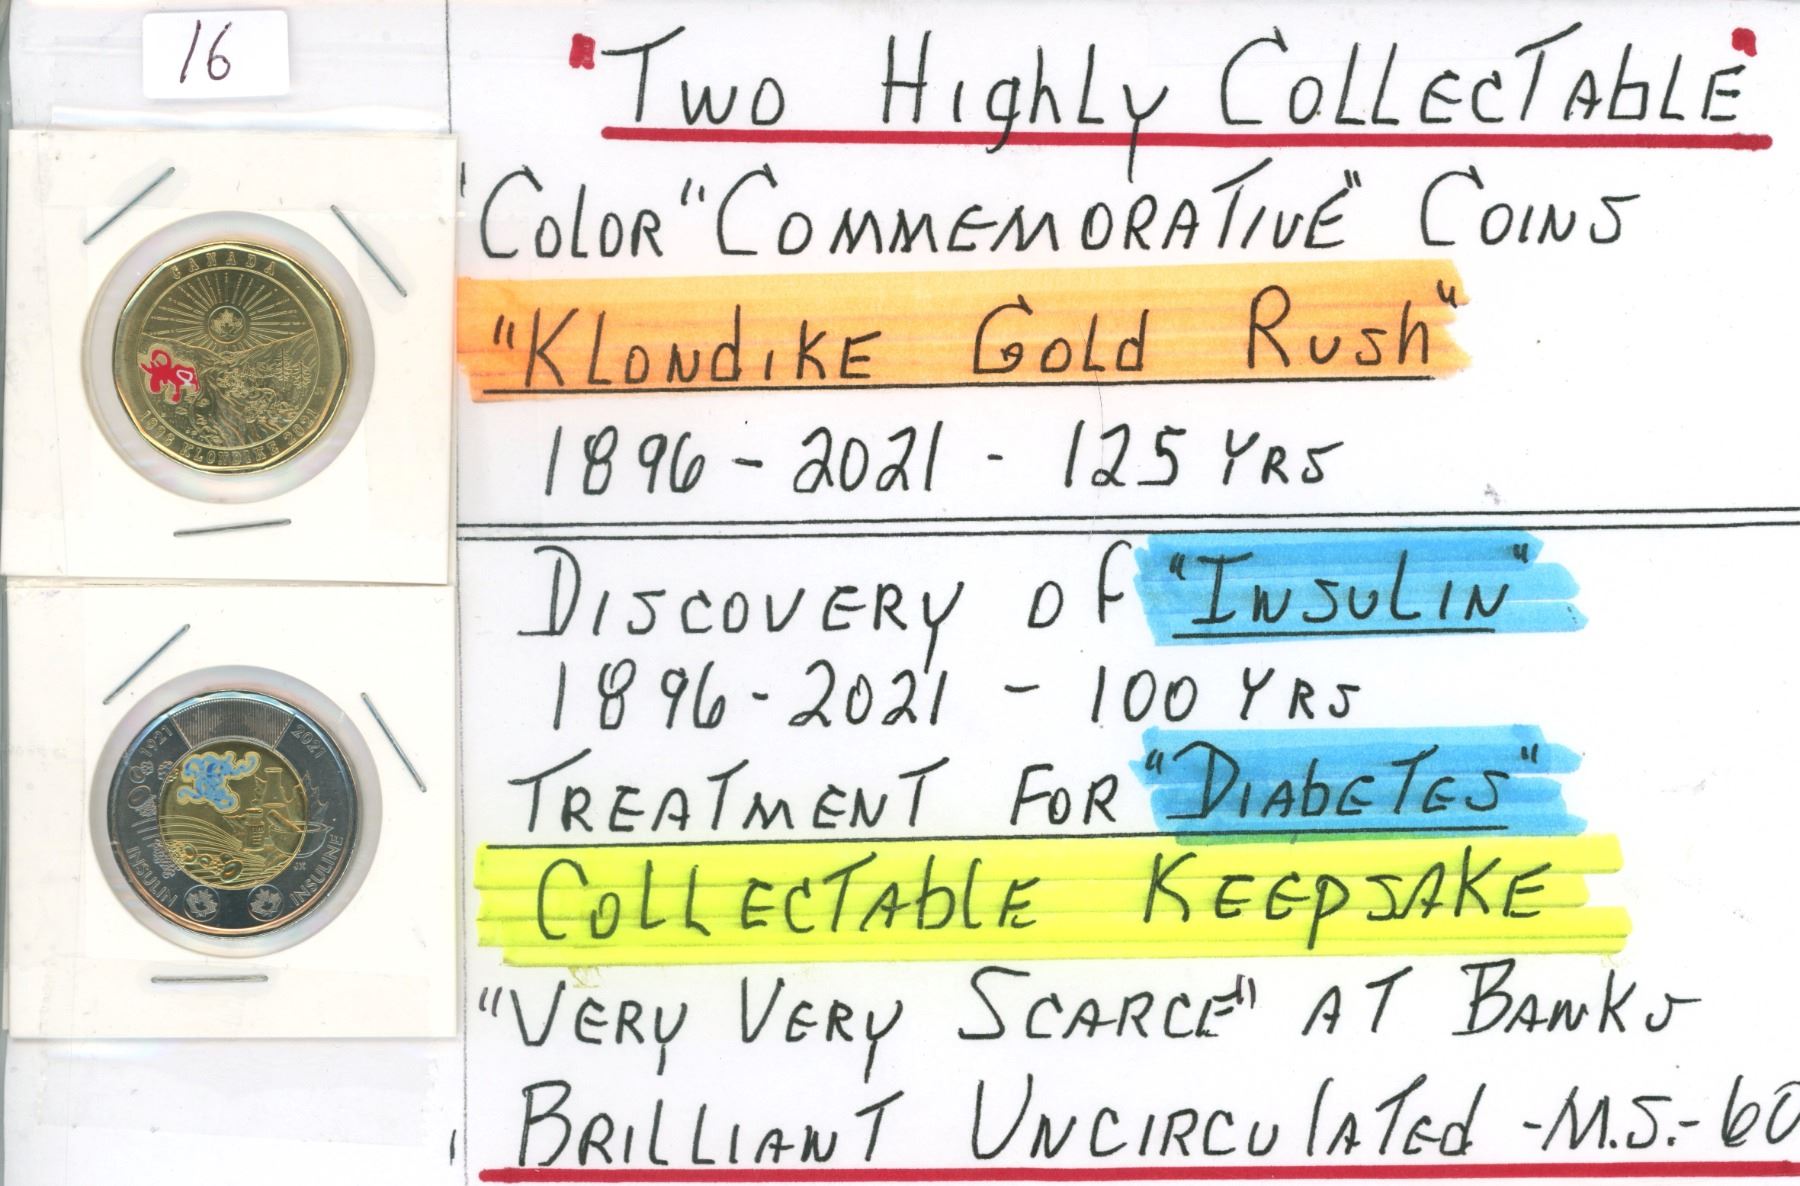 16
"Two Highly Collectable"
"Color "Commemorative" Coins
"Klondike Gold Rush"
1896 - 2021 - 125 Yrs
CANADA
1896 KLONDIKE 2021
Discovery of "Insulin"
1896 - 2021 - 100 Yrs
Treatment For "Diabetes"
Collectable Keepsake
"Very Very Scarce" at Banks
Brilliant Uncirculated -M.S.-60
1921 2021
INSULIN INSULINE
JK